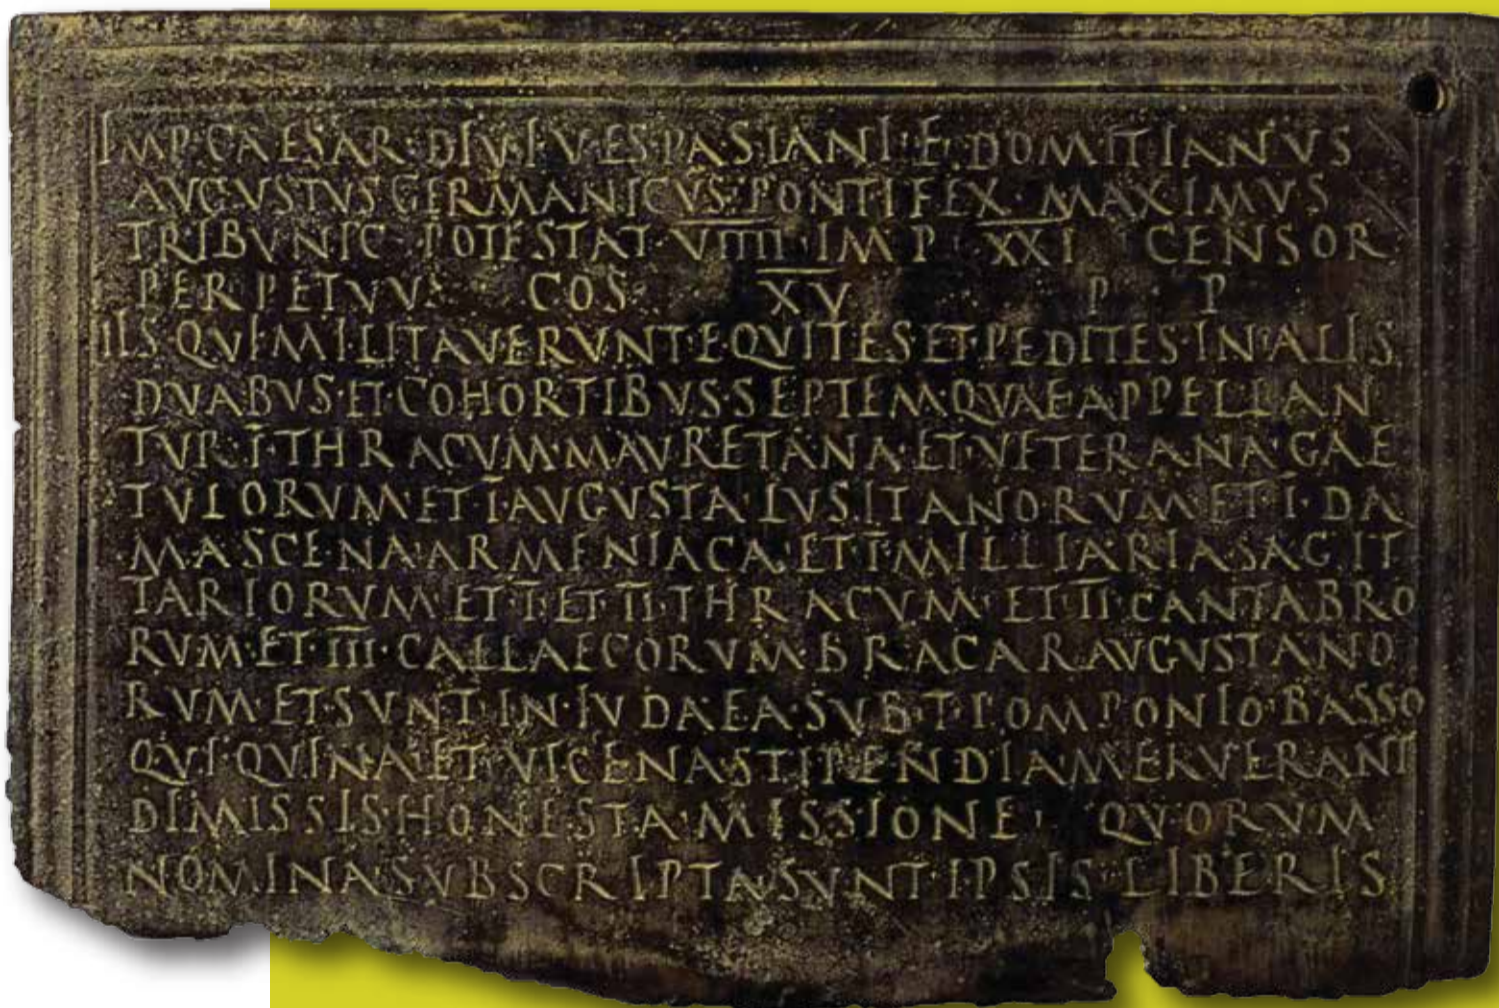 IMP·CAESAR·DIVI·VESPASIANI·F·DOMITIANVS
AVGVSTVS GERMANICVS·PONTIFEX·MAXIMVS
TRIBVNIC·POTESTAT·VIIII·IMP·XXI CENSOR
PERPETVVS COS XV P·P
IIS·QVI·MILITAVERVNT·EQVITES·ET·PEDITES·IN·ALIS
DVABVS·ET·COHORTIBVS·SEPTEM·QVAE·APPELLAN
TVR·I·THRACVM·MAVRETANA·ET·VETERANA·GAE
TVLORVM·ET·I·AVGVSTA·LVSITANORVM·ET·I·DA
MASCENA·ARMENIACA·ET·I·MILLIARIA·SAGIT
TARIORVM·ET·I·ET·II·THRACVM·ET·II·CANTABRO
RVM·ET·III·CALLAECORVM·BRACARAVGVSTANO
RVM·ET·SVNT·IN·IVDAEA·SVB·T·POMPONIO·BASSO
QVI·QVINA·ET·VICENA·STIPENDIA·MERVERANT
DIMISSIS·HONESTA·MISSIONE· QVORVM
NOMINA·SVBSCRIPTA·SVNT·IPSIS·LIBERIS